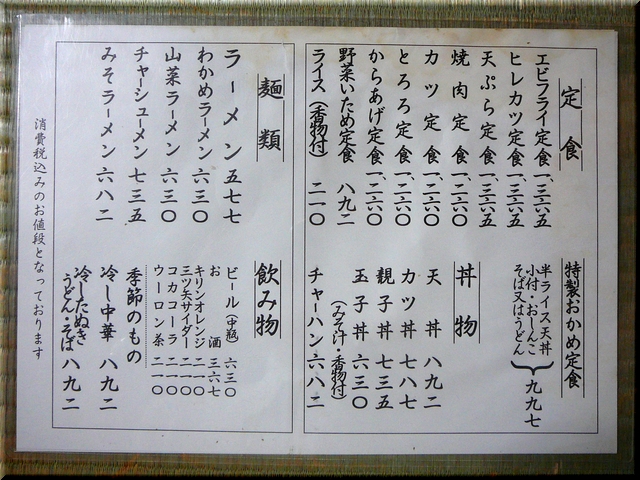 定食
エビフライ定食 一、三六五
ヒレカツ定食 一、三六五
天ぷら定食 一、三六五
焼肉定食 一、二六〇
カツ定食 一、二六〇
とろろ定食 一、二六〇
からあげ定食 一、二六〇
野菜いため定食 八九二
ライス(香物付) 二一〇
特製おかめ定食
半ライス天丼
小付・おしんこ
そば又はうどん
九九七
丼物
天丼 八九二
カツ丼 七八七
親子丼 七三五
玉子丼 六三〇
(みそ汁・香物付)
チャーハン 六八二
麺類
ラーメン 五七七
わかめラーメン 六三〇
山菜ラーメン 六三〇
チャシューメン 七三五
みそラーメン 六八二
飲み物
ビール(中瓶) 六三〇
お酒 三六七
キリンオレンジ 二一〇
三ツ矢サイダー 二一〇
コカコーラ 二一〇
ウーロン茶 二一〇
季節のもの
冷し中華 八九二
冷したぬき
うどん・そば 八九二
消費税込みのお値段となっております